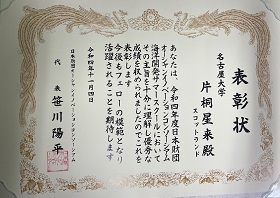 表彰状
名古屋大学
片桐星来殿
スコットランド
あなたは、令和四年度日本財団
オーシャンイノベーションコンソーシアム
海洋開発サマースクールにおいて
その主旨を十分に理解し優秀な
成績を収められましたのでこれを
表彰します
今後もフェローの模範となり
活躍されることを期待します
令和四年十一月四日
日本財団オーシャンイノベーションコンソーシアム
代表 笹川陽平